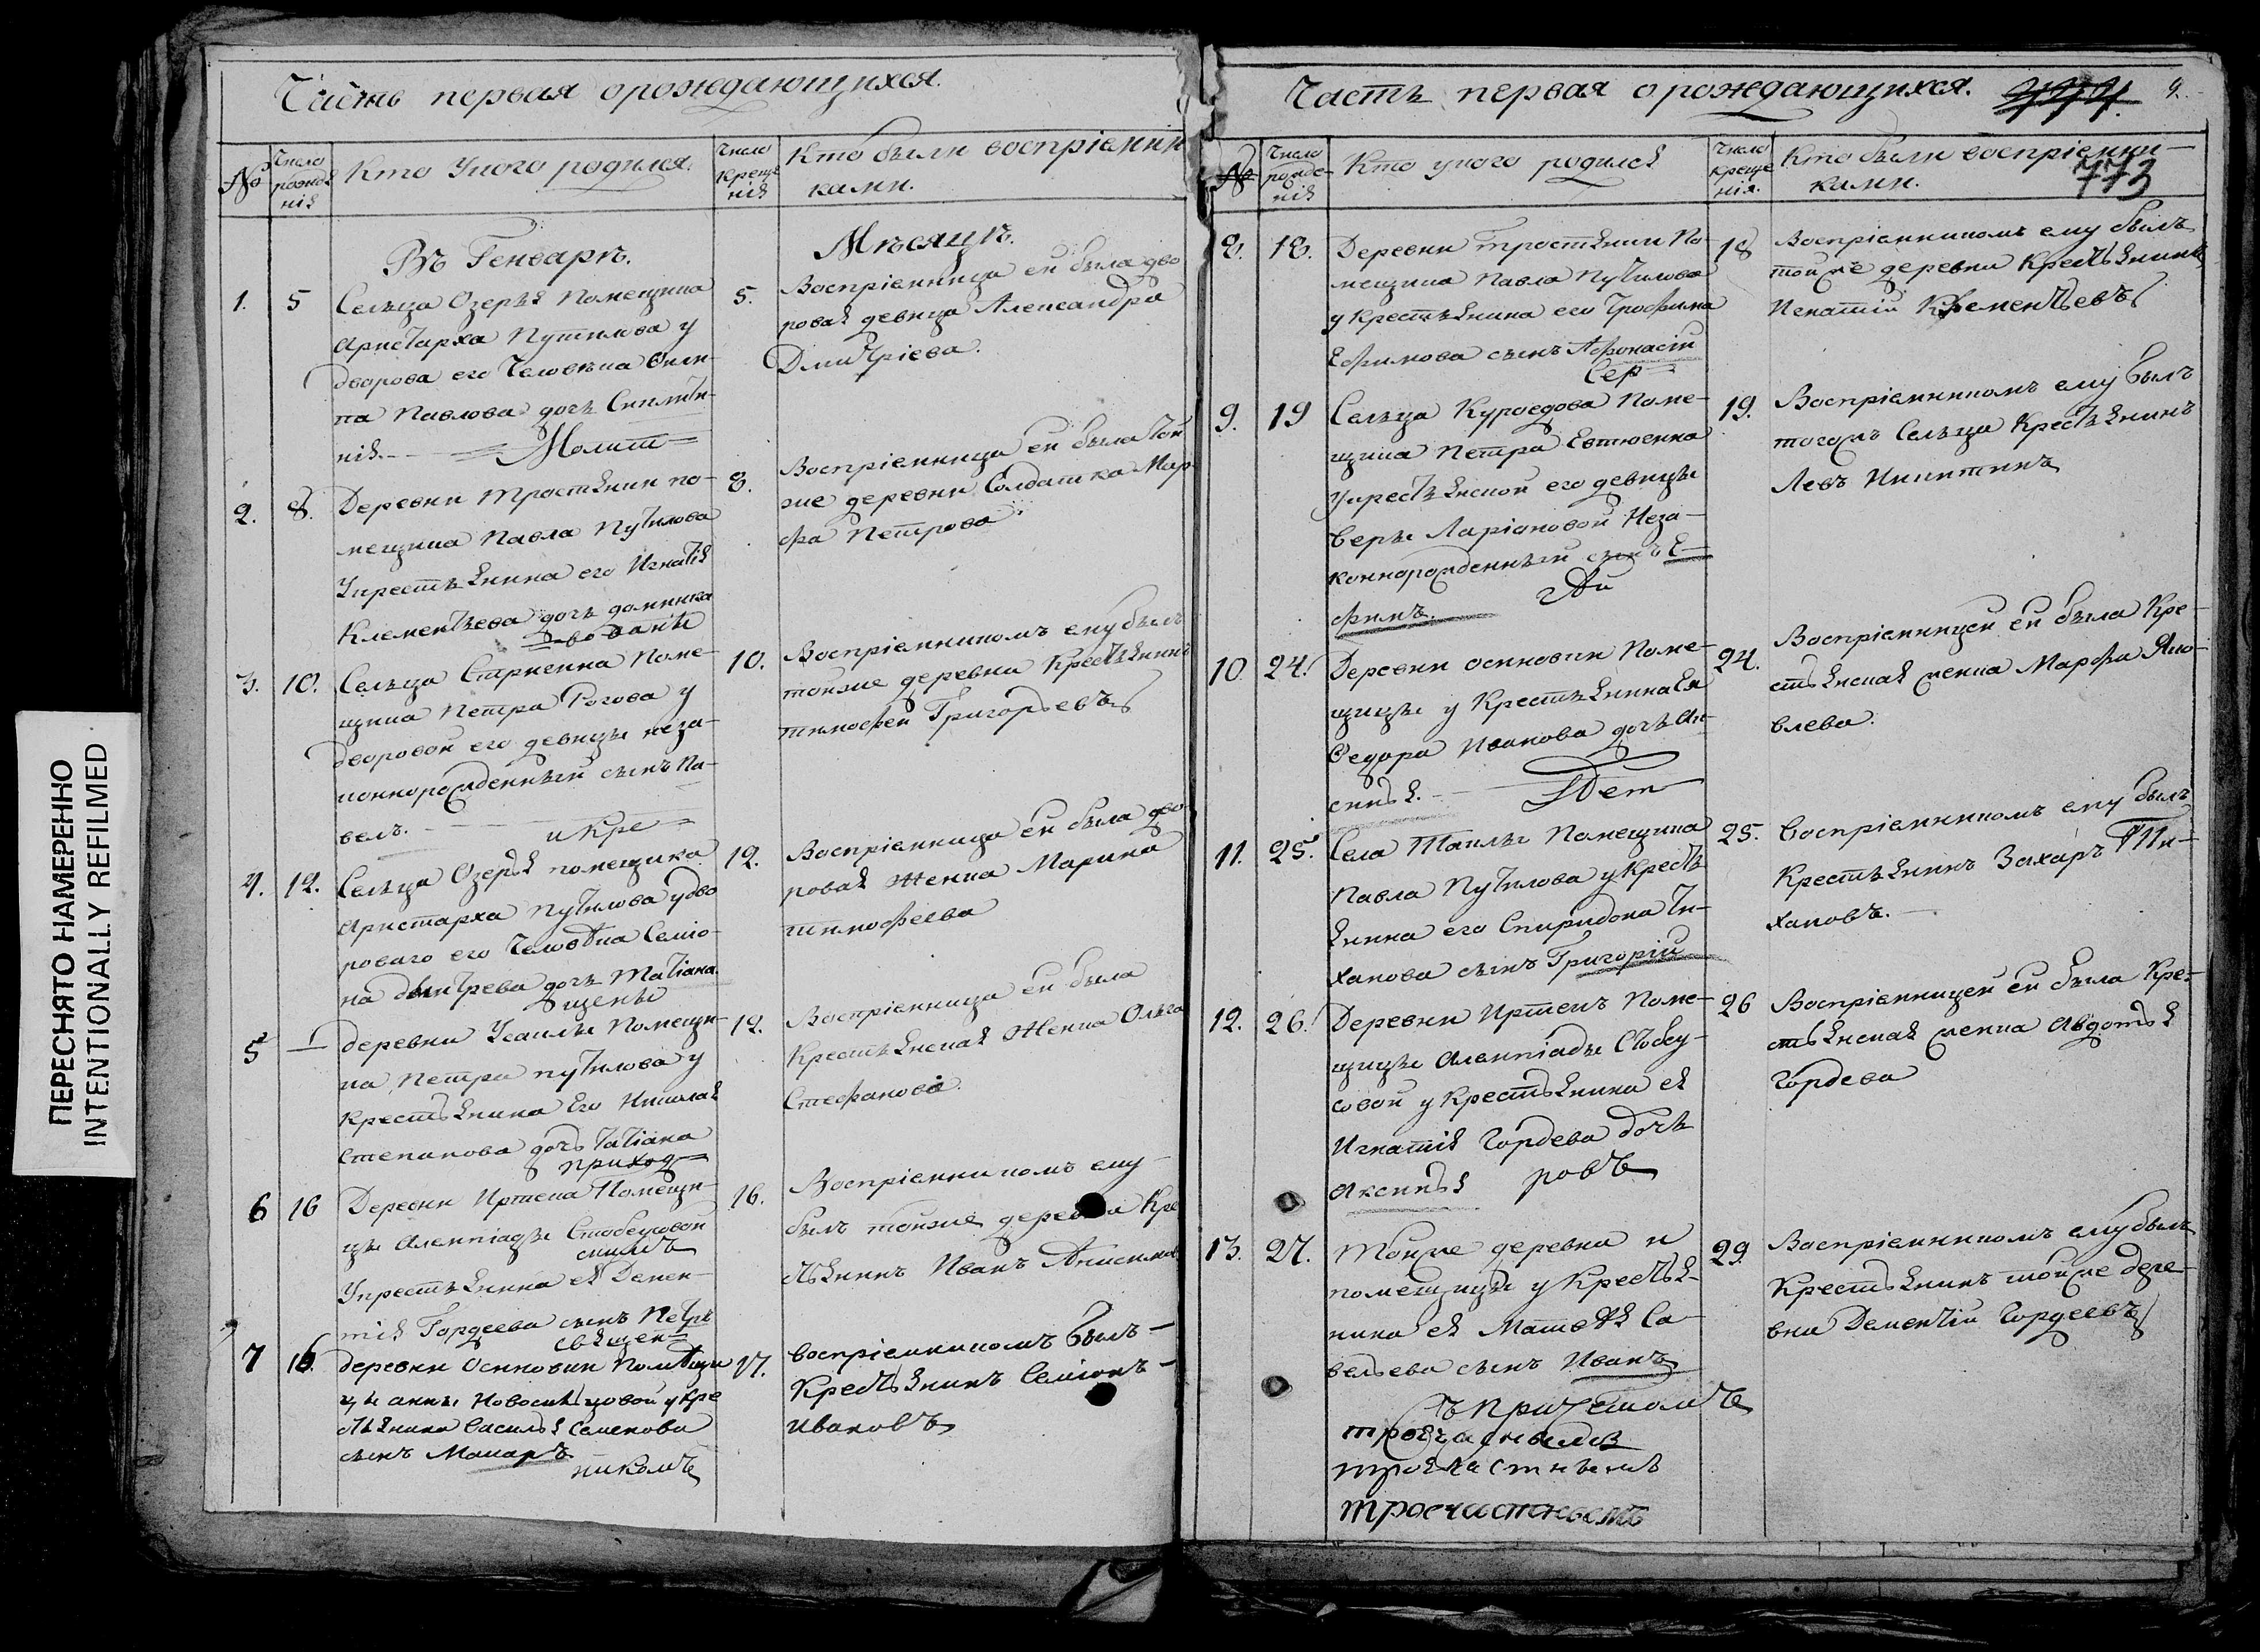 ПЕРЕСНЯТО НАМЕРЕННО
INTENTIONALLY REFILMED
Часть первая о рождающихся.
№
Число рожде нiя
Кто У кого родился.
Число креще нiя
Кто были воспрiемни
ками.
Въ Генварѣ.
Мѣсяцѣ.
1.
5
Сельца Озерья Помещика
Аристарха Путилова у
дворова его Человѣка Фили-
па Павлова дочь Синклити-
кiя.
Молит
5.
Воспрiемница ей была дво
ровая девица Александра
Дмитрiева.
2.
8.
Деревни тростянки по-
мещика Павла Путилова
Укрестьянина его Игнатiя
Клементьева дочь домника
во банѣ
8.
Воспрiемница ей была той
же деревни Солдатка Мар
фа Петрова.
3.
10.
Сельца Старкенка Поме-
щика Петра Рогова у
дворовой его девицы неза-
коннорожденный сынъ Па-
велъ.
и кре
10.
Воспрiемникомъ ему былъ
тойже деревни Крестьянинъ
тимофей Григорьевъ
4.
12.
Сельца Озерья помещика
Аристарха Путилова удво
роваго его Человѣка Семiо-
на дмитрева дочь Матiана
щены
12.
Воспрiемница ей была дво
ровая женка Марина
тимофеева
5
деревни Усаилы Помещи-
ка Петра путилова у
Крестьянина Его Николая
Степанова дочь Татiана
приход
12.
Воспрiемница ей была
Крестьянская Женка Ольга
Стефанова.
6
16
Деревни Иртека Помещи-
цы Алемпiады Стобеусовой
симъ
Укрестьянина ея Демен-
тiя Гордеева сынъ Петръ
священ
16.
Воспрiемникомъ ему
былъ тойже деревни Кре
стьянинъ Иванъ Анисимов
7
16.
деревни Осиновки Помѣщи
цы анны Новосильцовой укре
стьянина Василья Семенова
сынъ Макаръ
никомъ
17.
воспрiемникомъ былъ
Крестьянинъ Семiонъ
Ивановъ
Часть первая о рождающихся.
9.
773
№
Число рожде-нiя
Кто укого родился
Число креще нiя.
Кто были воспрiемни-
ками.
8.
18.
Деревни тростянки По-
мещика Павла Путилова
у Крестьянина его Трофима
Ефимова сынъ Афонасiй
Сер
18
Воспрiемникомъ ему былъ
тойже деревни Крестьянинъ
Игнатiй Клементьевъ
9.
19
Сельца Куроедова Поме-
щика Петра Евтюкина
Укрестьянской его девицы
Веры Ларiоновой Неза-
коннорожденный сынъ Е-
фимъ.
гѣй
19.
Воспрiемникомъ ему былъ
тогожъ Сельца Крестьянинъ
Левъ Никитинъ
10
24.
Деревни осиновки Поме-
щицы у Крестьянина Ея
Федора Иванова дочь Ак-
синья.
Пет
24.
Воспрiемницей ей была Кре-
стьянская женка Марфа Яко-
влева.
11.
25.
Села Ташлы Помещика
Павла Путилова укресть
янина его Спиридона Ти-
ханова сынъ Григорiй
25.
Воспрiемникомъ ему былъ
Крестьянинъ Захаръ Ти-
хановъ.
12.
26.
Деревни Иртекъ Поме-
щицы Алемпiады Стобеу-
совой у Крестьянина ея
Игнатiя Гордева дочь
Аксинья
ровъ
26
Воспрiемницей ей была Кре-
стьянская женка Авдотья
Гордева
13.
27.
Тойже деревни и
помещицы у Крестья-
нина ея Матвѣя Са-
вельева сынъ Иванъ
съ причетомъ
29.
Воспрiемникомъ ему былъ
Крестьянинъ тойже дере-
вни Дементiй Гордеевъ
троечастнымъ